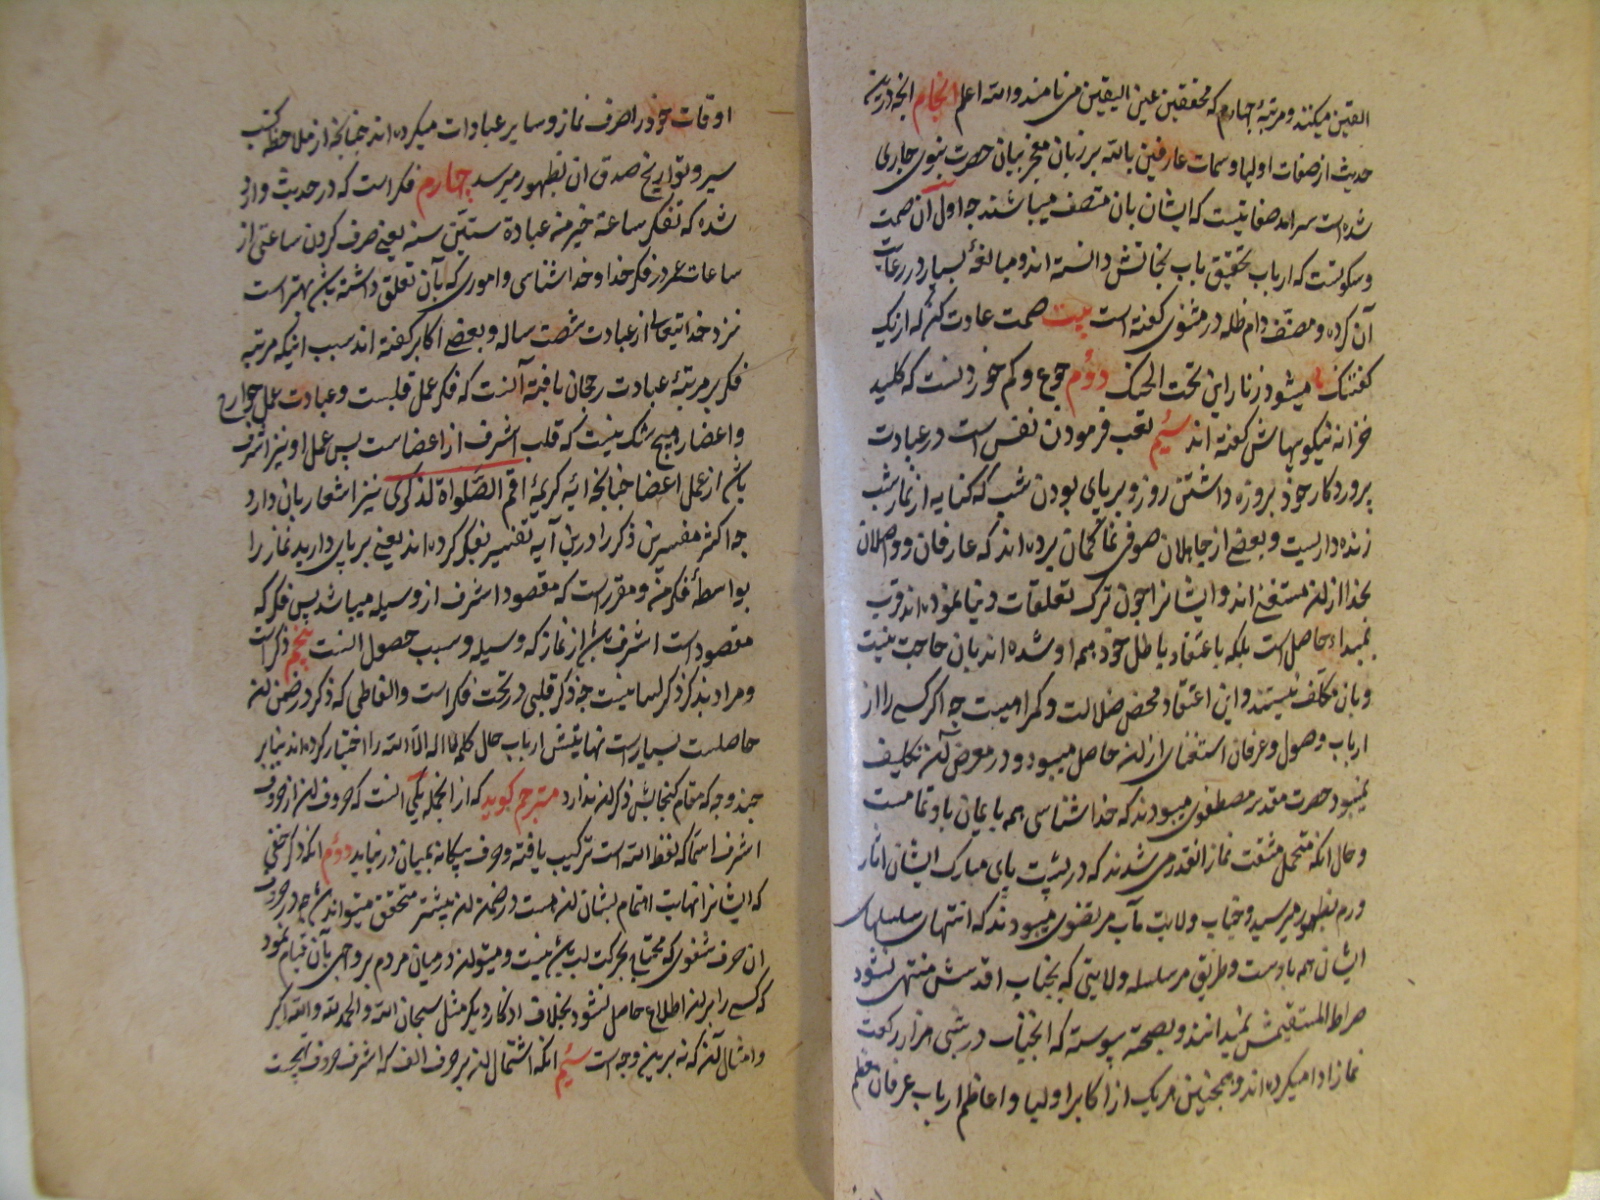 الیقین میکنند و مرتبهٔ چهارم که محققین عین الیقین می نامند والله اعلم انجام انچه درین
حدیث از صفات اولیا و سمات عارفین بالله بر زبان معجز بیان حضرت نبوی جاری
شده است سرآمد صفاتیست که ایشان بان متصف میباشند چه اول آن صمت
و سکوتست که ارباب تحقیق باب نجاتش دانسته اند و مبالغهٔ بسیار در رعایت
آن کرده و مصنف دام ظله در مثنوی گفته است بیت صمت عادت کن که از یک
گفتنک با میشود زنار این تحت الحنک دوم جوع و کم خوردنست که کلید
خزانه نیکوییهاش گفته اند سیم تعب فرمودن نفس است در عبادت
پروردگار خود بروزه داشتن روز و برپای بودن شب که کنایه از نماز شب
زنده داریست و بعضی از جاهلان صوفی نما گمان برده اند که عارفان و واصلان
بخدا از ان مستغنی اند و ایشانرا چون ترک تعلقات دنیا نموده اند قرب
بمبداء حاصل است بلکه باعتقاد باطل خود همه او شده اند بان حاجت نیست
و بان مکلف نیستند و این اعتقاد محض ضلالت و گمراهیست چه اگر کسی را از
ارباب وصول و عرفان استغنای از ان حاصل میبود و در معرض آن تکلیف
نمیبود حضرت مقدس مصطفوی میبودند که خداشناسی همه با یمان باو تمامست
و حال آنکه متحمل مشقت نماز انقدر می شدند که در پشت پای مبارک ایشان اثار
ورم بظهور میرسید و جناب ولایت مآب مرتضوی میبودند که انتهای سلسلهای
ایشان همه باوست و طریق هر سلسله ولایتی که بجناب اقدسش منتهی نشود
صراط المستقیمش نمیدانند و بصحت پیوسته که انجناب در شبی هزار رکعت
نماز ادا میکرده اند و همچنین هر یک از اکابر اولیا و اعاظم ارباب عرفان معظم
اوقات خود را صرف نماز و سایر عبادات میکرده اند چنانچه از ملاحظه کتب
سیر و تواریخ صدق ان بظهور میرسد چهارم فکر است که در حدیث وارد
شده که تفکر ساعة خیر من عبادة ستین سنه یعنی صرف کردن ساعتی از
ساعات عمر در فکر خدا و خداشناسی و اموری که بآن تعلق داشته باشد بهتر است
نزد خدایتعالی از عبادت شصت ساله و بعضی اکابر گفته اند سبب اینکه مرتبه
فکر بر مرتبهٔ عبادت رجحان یافته آنست که فکر عمل قلبست و عبادت عمل جوارح
و اعضا و هیچ شک نیست که قلب اشرف از اعضاست پس عمل او نیز اشرف
باشد از عمل اعضا چنانچه ایه کریمهٔ اقم الصلواة لذکری نیز اشعار بان دارد
چه اکثر مفسرین ذکر را درین آیه تفسیر بفکر کرده اند یعنی برپای دارید نماز را
بواسطهٔ فکر من و مقرر است که مقصود اشرف از وسیله میباشد پس فکر که
مقصود است اشرف باشد از نماز که وسیله و سبب حصول انست پنجم ذکر است
و مراد بذکر ذکر لسانیست چه ذکر قلبی در تحت فکر است و الفاظی که ذکر در ضمن ان
حاصلست بسیار است نهایتش ارباب حال کلمه لا اله الا الله را اختیار کرده اند بنابر
چند وجه که مقام گنجایش ذکر ان ندارد مترجم گوید که از انجمله یکی انست که حروف ان از حروف
اشرف اسما که لفظ الله است ترکیب یافته و حرف بیگانه بمیان در نیاید دوم انکه ذکر خفی
که ایشانرا نهایت اهتمام بشان ان هست در ضمن ان بیشتر متحقق میتواند شد چه در حروف
ان حرف شفوی که محتاج بحرکت لب باشد نیست و میتوان در میان مردم بر وجهی بآن قیام نمود
که کسی را بران اطلاع حاصل نشود بخلاف اذکار دیگر مثل سبحان الله والحمد لله والله اکبر
و امثال آن که نه برین وجه است سیم انکه اشتمال ان بر حرف الف که اشرف حروف تهجیت